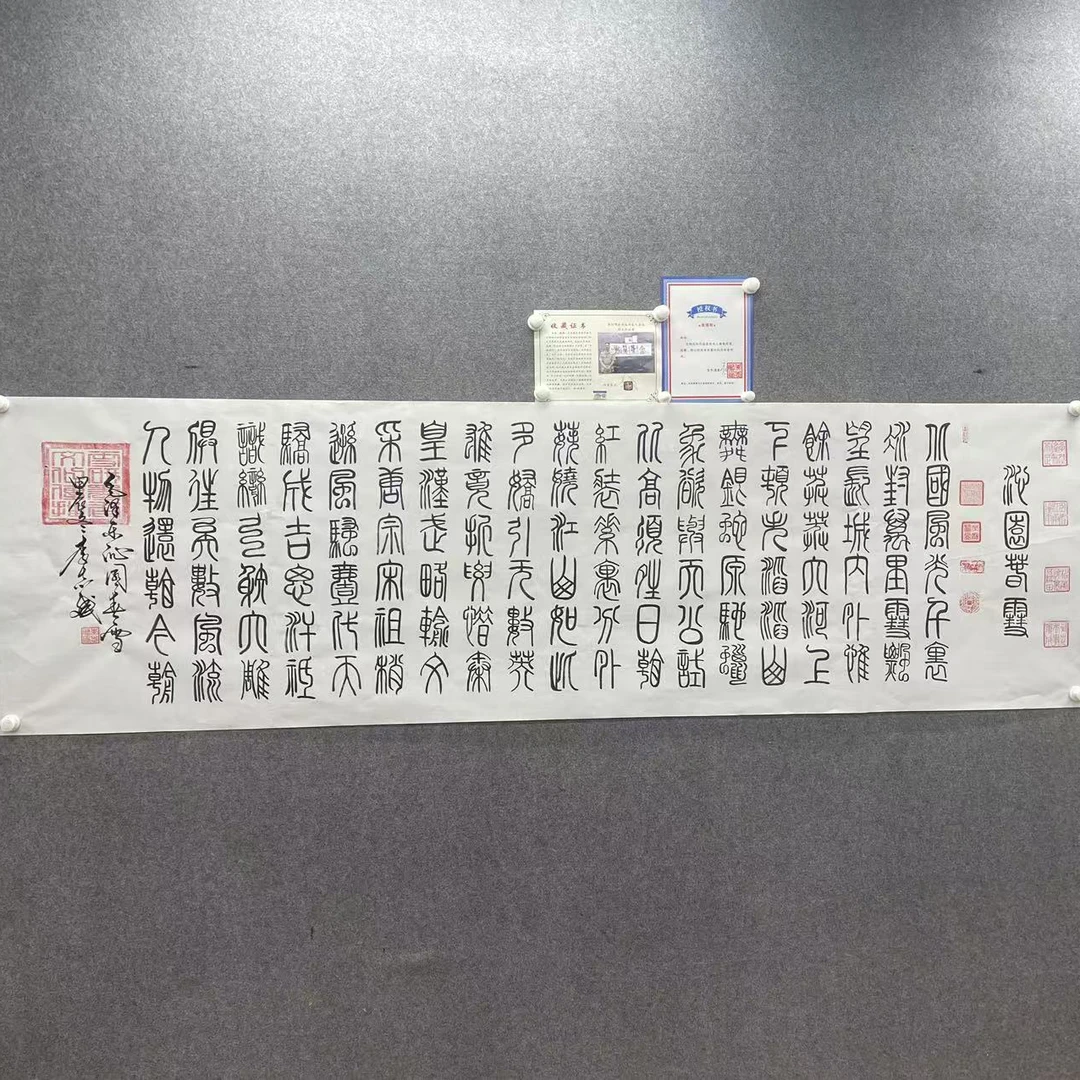 收藏证书
授权书
沁園春雪
北國風光千裏
冰封萬里雪飄
望長城內外惟
餘莽莽大河上
下頓失滔滔山
舞銀蛇原馳蠟
象欲與天公試
比高須晴日看
紅裝素裹分外
妖嬈江山如此
多嬌引无數英
雄競折腰惜秦
皇漢武略輸文
采唐宗宋祖稍
遜風騷壹代天
驕成吉思汗祗
識彎弓射大雕
俱往矣數風流
人物還看今朝
毛澤东沁園春雪